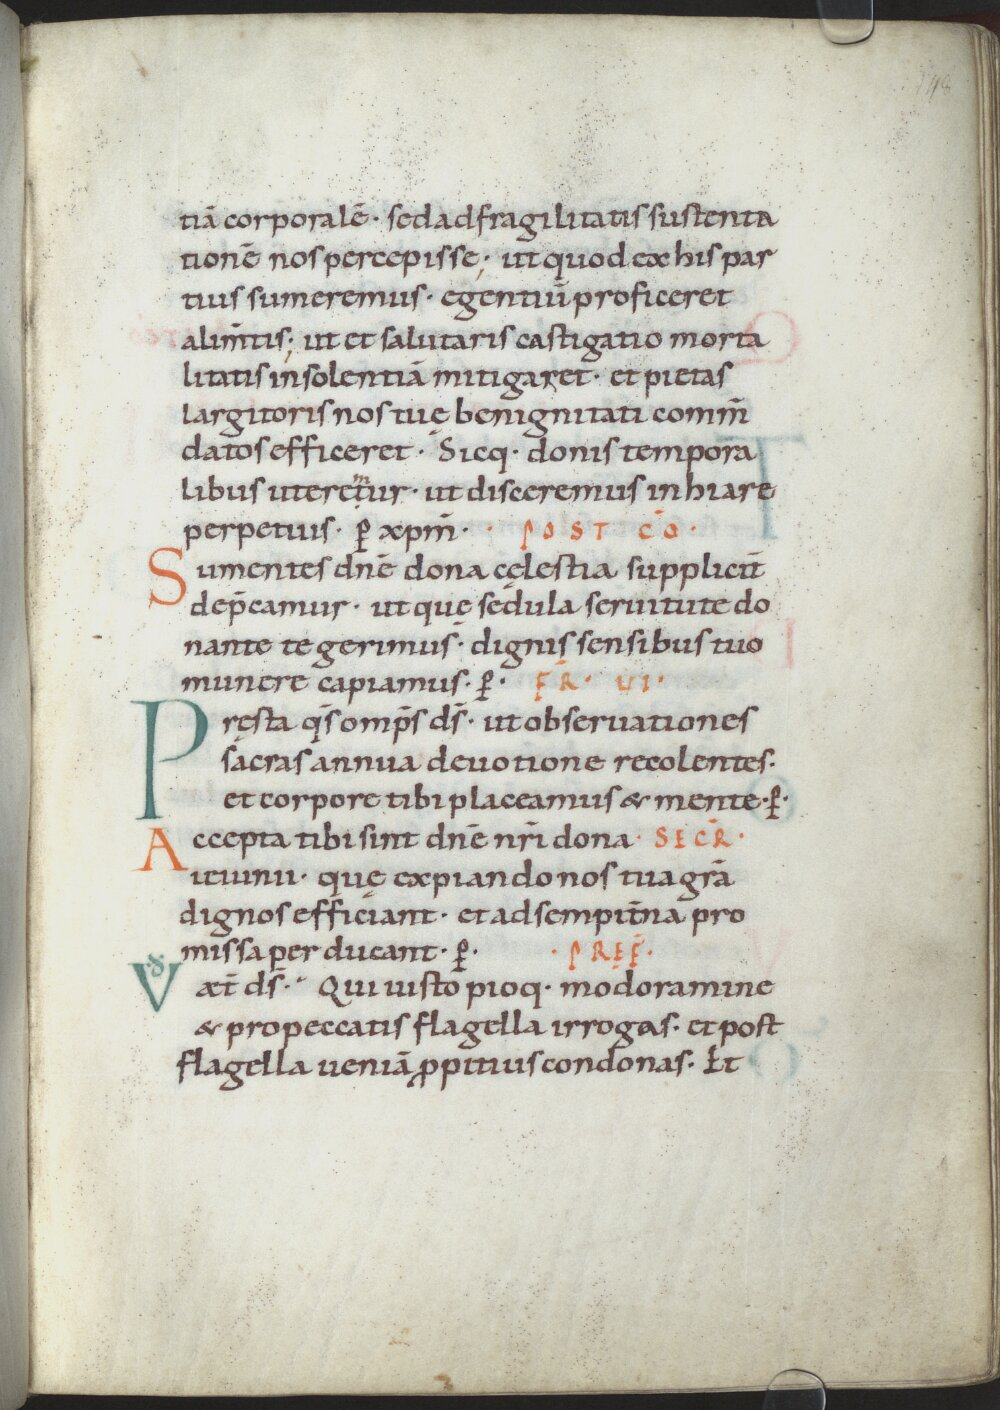 148
tiā corporalē· sed ad fragilitatis sustenta
tionē nos percepisse; ut quod ex his par
tius sumeremus· egentiū proficeret
alim̄tis; ut et salutaris castigatio morta
litatis insolentiā mitigaret· et pietas
largitoris nos tuę benignitati com̄m
datos efficeret· Sicq· donis tempora
libus uteremur· ut disceremus inhiare
perpetuis· ꝑ xpm̄· POST CŌ·
Sumentes dn̄e dona cęlestia supplicit̄
dep̄camur· ut quę sedula seruitute do
nante te gerimus· dignis sensibus tuo
munere capiamus· ꝑ· FR̄· VI·
Pręsta qs̄ omps̄ ds̄· ut obseruationes
sacras annua deuotione recolentes·
et corpore tibi placeamus & mente· ꝑ·
Accepta tibi sint dn̄e nr̄i dona SECR̄·
ieiunii· quę expiando nos tua gr̄a
dignos efficiant· et ad sempit̄na pro
missa perducant· ꝑ· ·PREF̄·
VD æt̄ ds̄· Qui iusto pioq· modoramine
& pro peccatis flagella irrogas· et post
flagella ueniā ꝓpitius condonas· Et